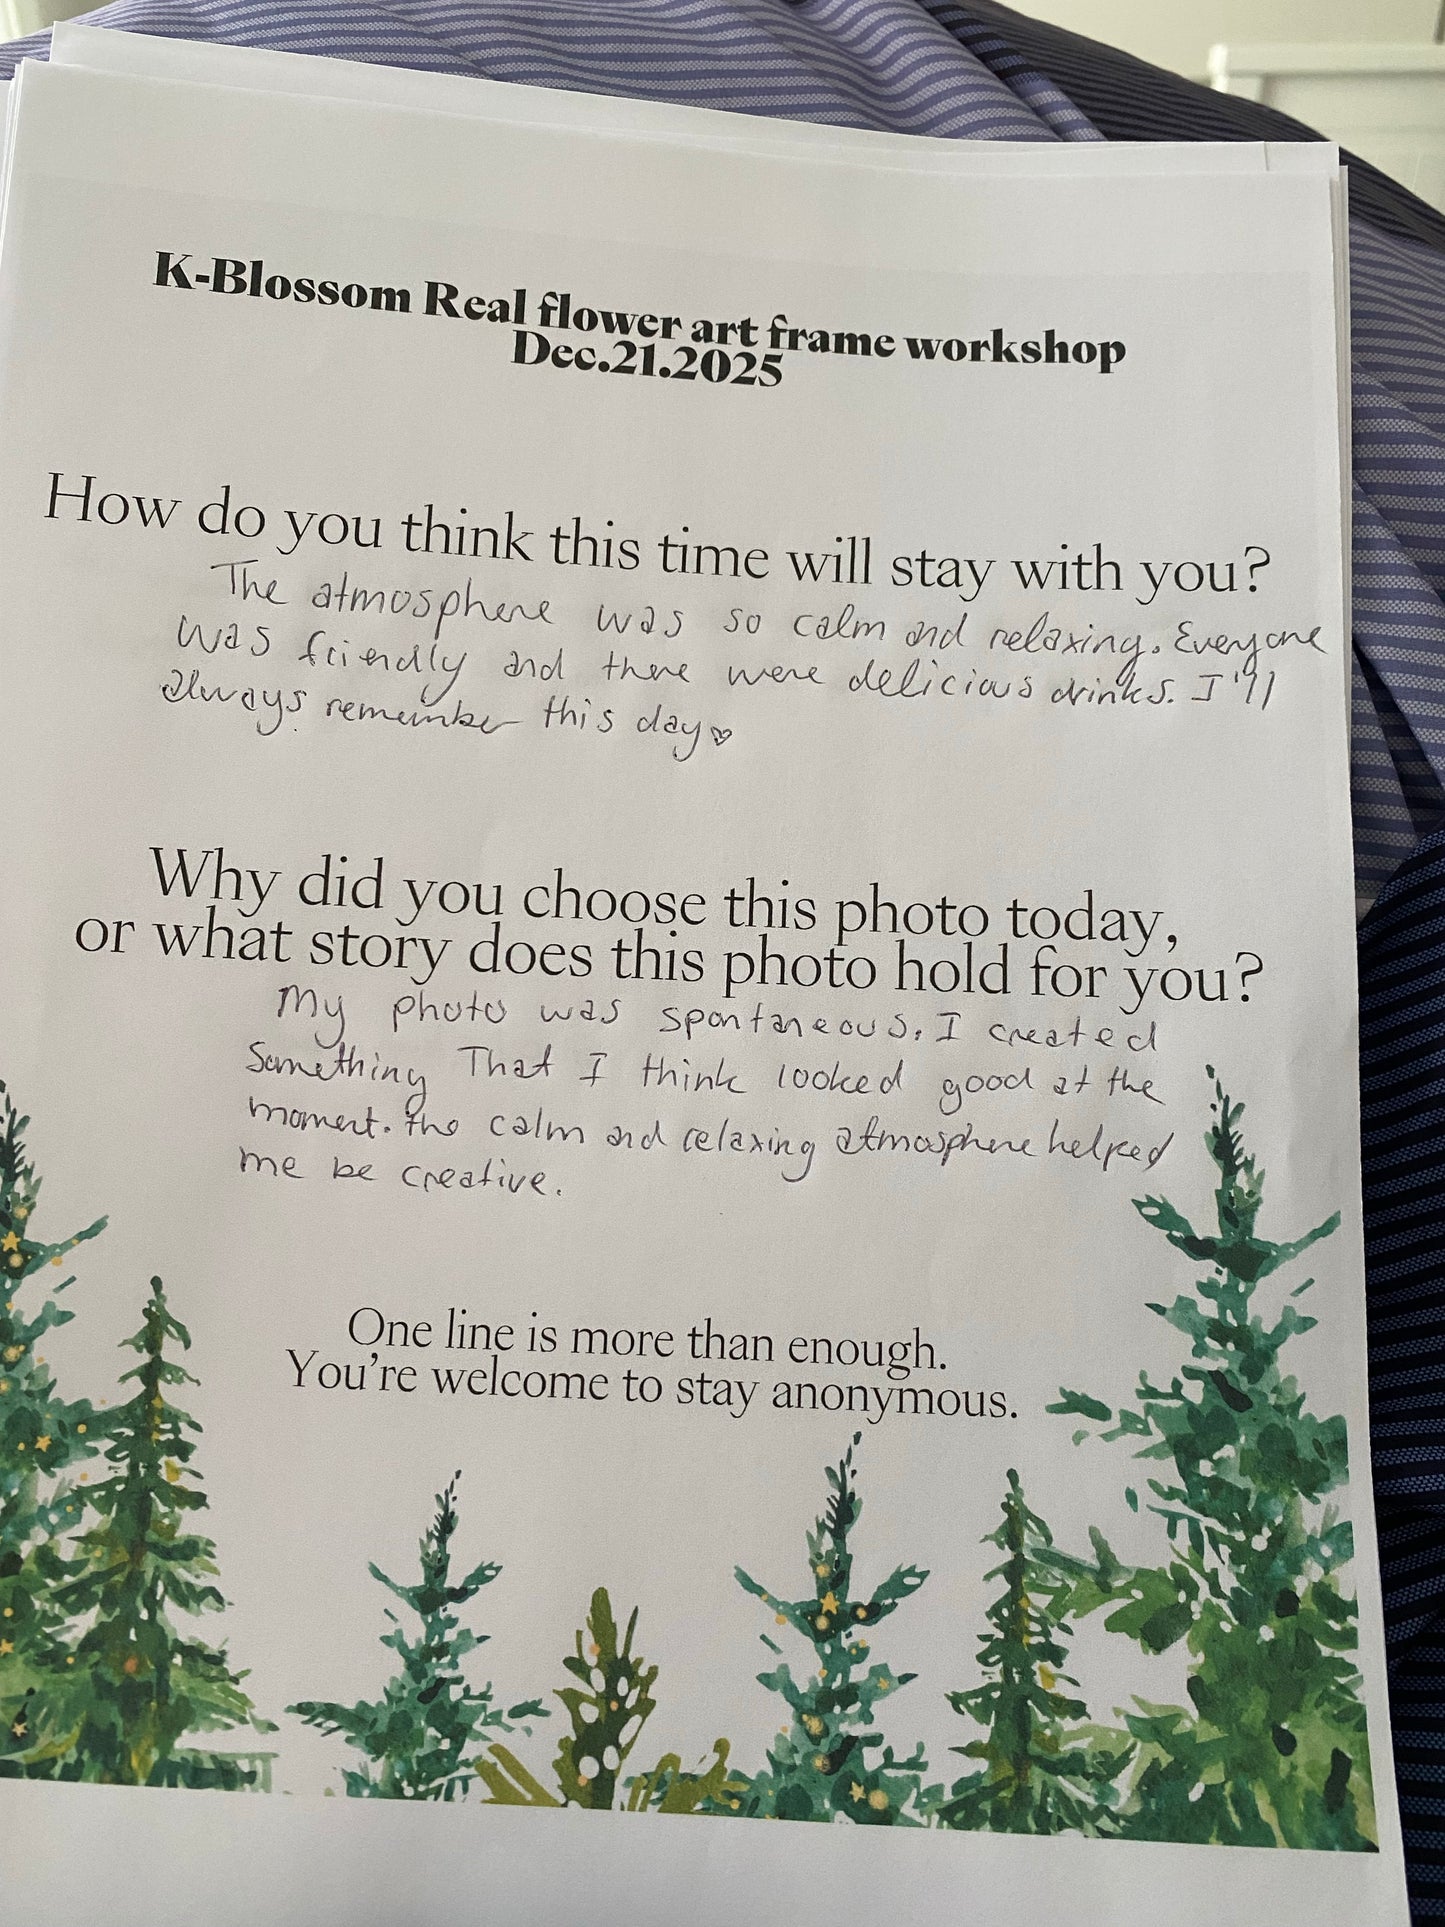 K-Blossom Real flower art frame workshop
Dec.21.2025
How do you think this time will stay with you?
The atmosphere was so calm and relaxing. Everyone
was friendly and there were delicious drinks. I'll
always remember this day♡
Why did you choose this photo today,
or what story does this photo hold for you?
My photo was spontaneous. I created
Something That I think looked good at the
moment. the calm and relaxing atmosphere helped
me be creative.
One line is more than enough.
You're welcome to stay anonymous.